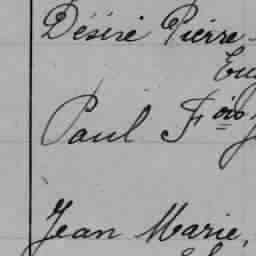 Désiré Pierre-
Eug
Paul F.ois
Jean Marie,